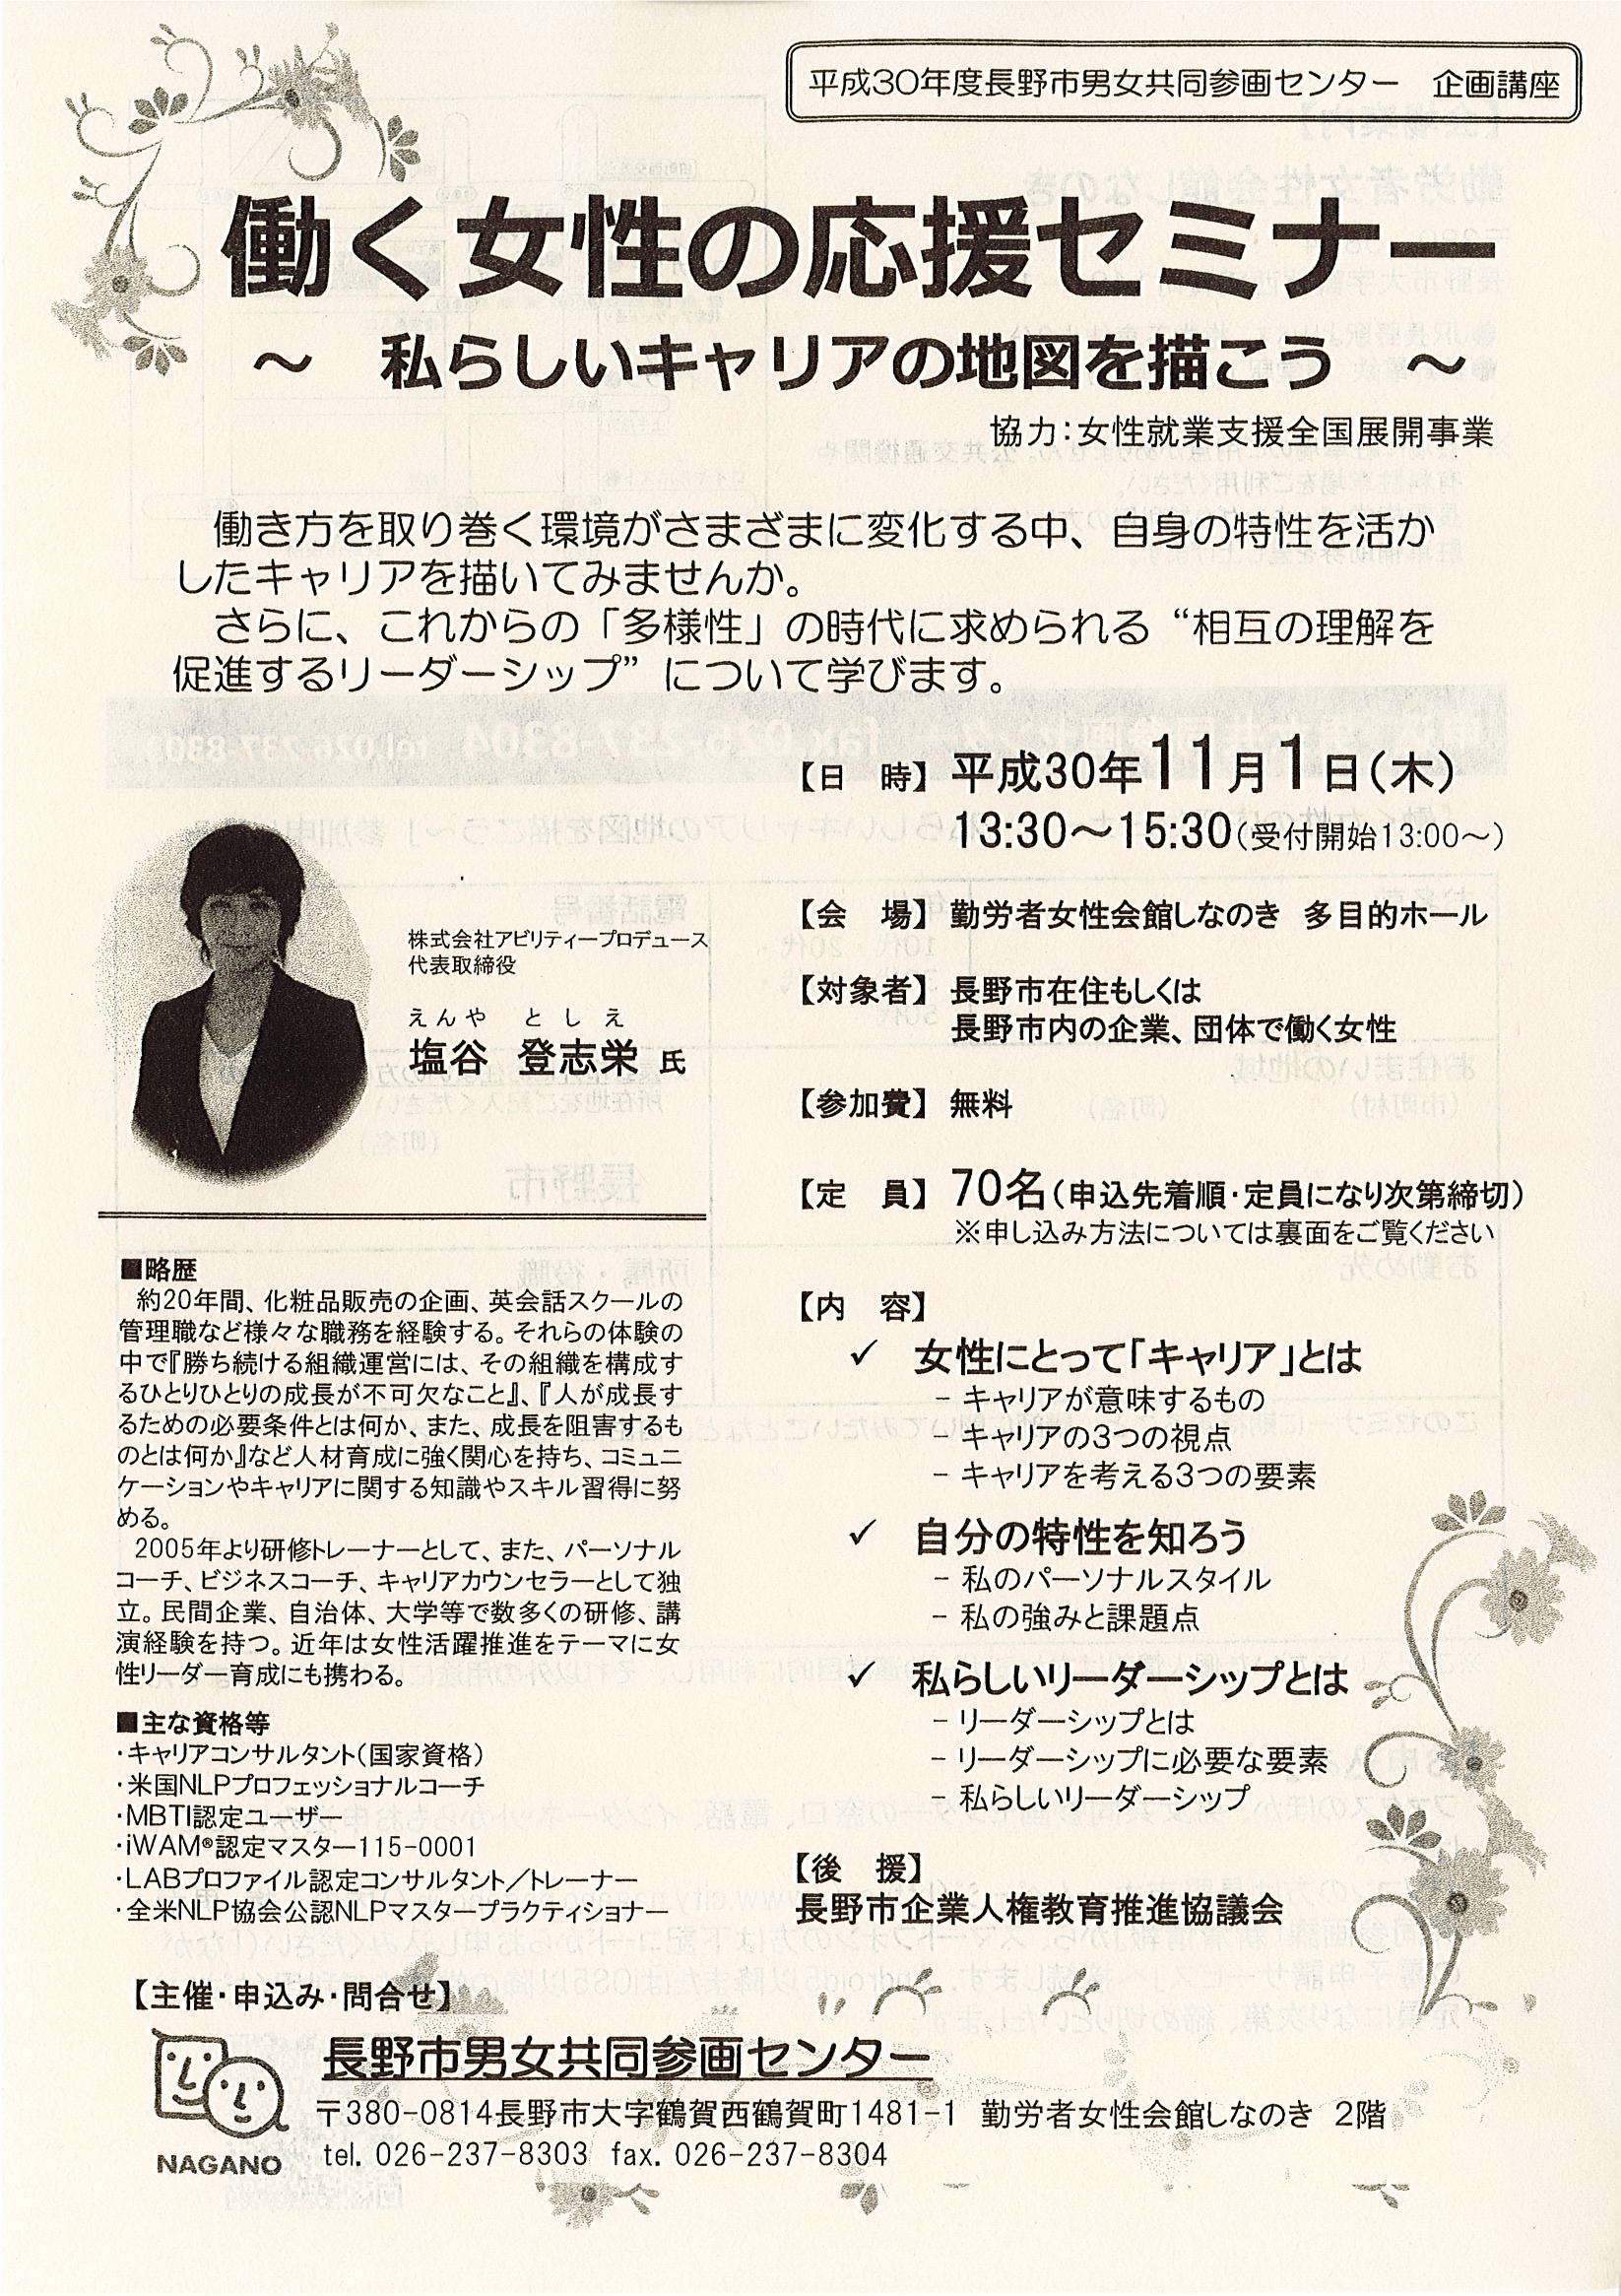 平成30年度長野市男女共同参画センター　企画講座
働く女性の応援セミナー
～　私らしいキャリアの地図を描こう　～
協力：女性就業支援全国展開事業
働き方を取り巻く環境がさまざまに変化する中、自身の特性を活か
したキャリアを描いてみませんか。
さらに、これからの「多様性」の時代に求められる“相互の理解を
促進するリーダーシップ”について学びます。
【日　時】平成30年11月1日（木）
13:30～15:30（受付開始13:00～）
【会　場】勤労者女性会館しなのき 多目的ホール
【対象者】長野市在住もしくは
長野市内の企業、団体で働く女性
【参加費】無料
【定　員】70名（申込先着順・定員になり次第締切）
※申し込み方法については裏面をご覧ください
【内　容】
✓ 女性にとって「キャリア」とは
- キャリアが意味するもの
- キャリアの3つの視点
- キャリアを考える3つの要素
✓ 自分の特性を知ろう
- 私のパーソナルスタイル
- 私の強みと課題点
✓ 私らしいリーダーシップとは
- リーダーシップとは
- リーダーシップに必要な要素
- 私らしいリーダーシップ
【後　援】
長野市企業人権教育推進協議会
株式会社アビリティープロデュース
代表取締役
えんや　としえ
塩谷　登志栄 氏
■略歴
約20年間、化粧品販売の企画、英会話スクールの
管理職など様々な職務を経験する。それらの体験の
中で『勝ち続ける組織運営には、その組織を構成す
るひとりひとりの成長が不可欠なこと』、『人が成長す
るための必要条件とは何か、また、成長を阻害するも
のとは何か』など人材育成に強く関心を持ち、コミュニ
ケーションやキャリアに関する知識やスキル習得に努
める。
2005年より研修トレーナーとして、また、パーソナル
コーチ、ビジネスコーチ、キャリアカウンセラーとして独
立。民間企業、自治体、大学等で数多くの研修、講
演経験を持つ。近年は女性活躍推進をテーマに女
性リーダー育成にも携わる。
■主な資格等
・キャリアコンサルタント（国家資格）
・米国NLPプロフェッショナルコーチ
・MBTI認定ユーザー
・iWAM®認定マスター115-0001
・LABプロファイル認定コンサルタント／トレーナー
・全米NLP協会公認NLPマスタープラクティショナー
【主催・申込み・問合せ】
NAGANO
長野市男女共同参画センター
〒380-0814長野市大字鶴賀西鶴賀町1481-1 勤労者女性会館しなのき 2階
tel. 026-237-8303 fax. 026-237-8304